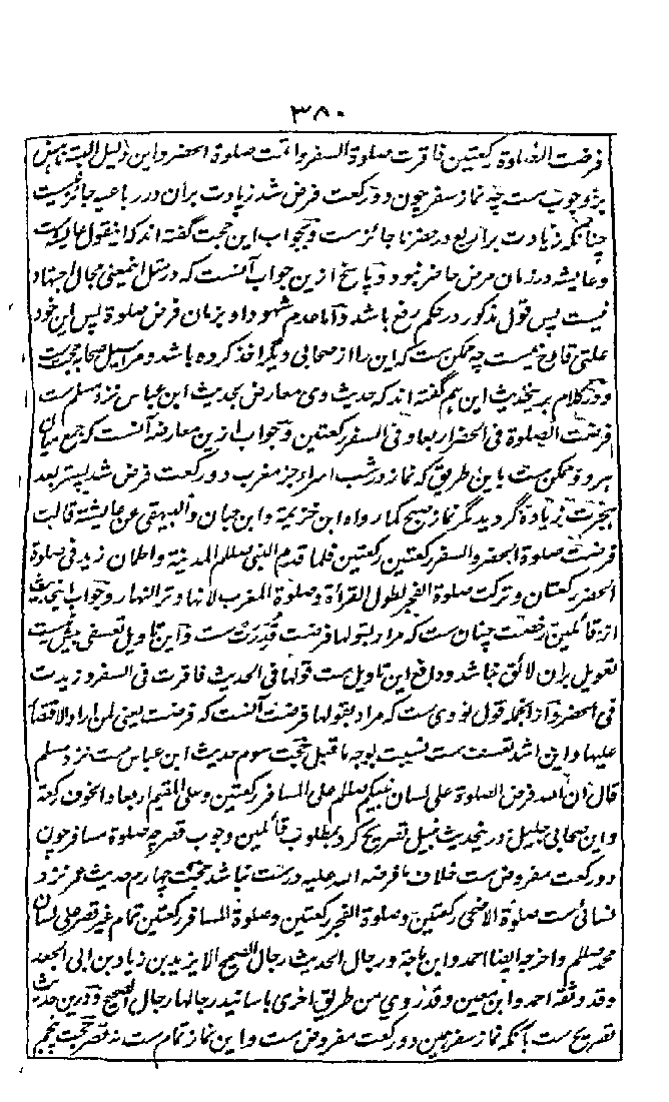 ۳۸۰
فرضت الصلوة رکعتین فاقرت صلوة السفر واتمت صلوة الحضر واین دلیل البته ناهض
بر وجوب ست چه نماز سفر چون دو رکعت فرض شد زیادت بران در رباعیه جائز نیست
چنانکه زیادت بر اربع در حضر ناجائز ست و بجواب این حجت گفته اند که اینقول عایشه ست
و عایشه در زمان فرض حاضر نبود و پاسخ ازین جواب آنست که در مثل اینمعنی مجال اجتهاد
نیست پس قول مذکور در حکم رفع باشد و اما عدم شهود او بزمان فرض صلوة پس این خود
علتی قادح نیست چه ممکن ست که این را از صحابی دیگر اخذ کرده باشد و مراسیل صحابه حجت ست
و در کلام برینحدیث این هم گفته اند که حدیث وی معارض بحدیث ابن عباس نزد مسلم ست
فرضت الصلوة فی الحضر اربعا و فی السفر رکعتین و جواب ازین معارضه آنست که جمع میان
هر دو ممکن ست باین طریق که نماز در شب اسراء جز مغرب دو رکعت فرض شد پستر بعد
هجرت زیاده گردید مگر نماز صبح کما رواه ابن خزیمة وابن حبان والبیهقی عن عایشة قالت
فرضت صلوة الحضر والسفر رکعتین رکعتین فلما قدم النبی صللم المدینة واطمان زید فی صلوة
الحضر رکعتان وترکت صلوة الفجر لطول القرأة وصلوة المغرب لانها وتر النهار و جواب اینحدیث
از قائلین رخصت چنان ست که مراد بقولها فرضت قدرت ست و این تاویل تعسفی بیش نیست
تعویل بران لائق نباشد و دافع این تاویل ست قولها فی الحدیث فاقرت فی السفر وزیدت
فی الحضر و از آنجمله قول نووی ست که مراد بقولها فرضت آنست که فرضت یعنی لمن اراد الاقتصار
علیها و این اشد تعسف ست نسبت بوجه ماقبل حجت سوم حدیث ابن عباس ست نزد مسلم
قال ان الله فرض الصلوة علی لسان نبیکم صللم علی المسافر رکعتین وعلی المقیم اربعا والخوف رکعة
و این صحابی جلیل درینحدیث نبیل تصریح کرد بمطلوب قائلین وجوب قصر چه صلوة مسافر چون
دو رکعت مفروض ست خلاف ما فرضه الله علیه درست نباشد حجت چهارم حدیث عمر نزد
نسائی ست صلوة الاضحی رکعتین وصلوة الفجر رکعتین وصلوة المسافر رکعتین تمام غیر قصر علی لسان
محمد صللم واخرجه ایضا احمد وابن ماجة و رجال الحدیث رجال الصحیح الا یزید بن زیاد بن ابی الجعد
وقد وثقه احمد وابن معین وقد روی من طریق اخری باسانید رجالها رجال الصحیح و درین حدیث
تصریح ست بآنکه نماز سفر همین دو رکعت مفروض ست و این نماز تمام ست نه قصر حجت پنجم